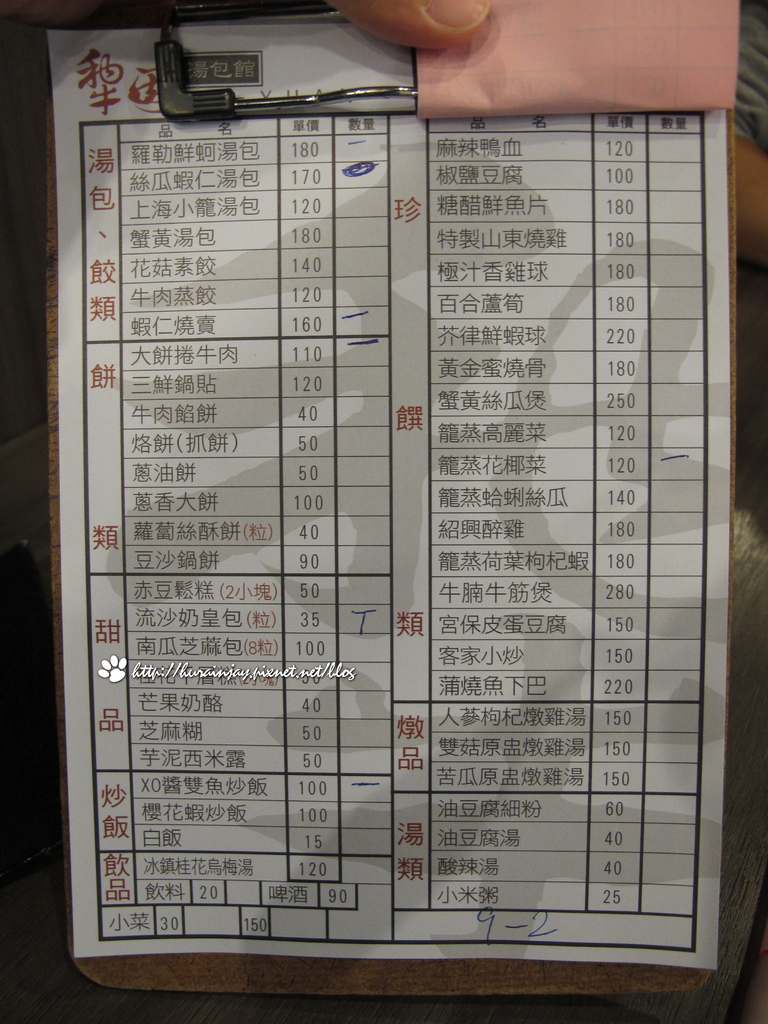 犂
湯包館
品 名 單價 數量
湯包、餃類
羅勒鮮蚵湯包 180 一
絲瓜蝦仁湯包 170
上海小籠湯包 120
蟹黃湯包 180
花菇素餃 140
牛肉蒸餃 120
蝦仁燒賣 160 一
餅類
大餅捲牛肉 110 一
三鮮鍋貼 120
牛肉餡餅 40
烙餅(抓餅) 50
蔥油餅 50
蔥香大餅 100
蘿蔔絲酥餅(粒) 40
豆沙鍋餅 90
甜品
赤豆鬆糕(2小塊) 50
流沙奶皇包(粒) 35 T
南瓜芝蔴包(8粒) 100
http://hurainjay.pixnet.net/blog
芒果奶酪 40
芝麻糊 50
芋泥西米露 50
炒飯
XO醬雙魚炒飯 100 一
櫻花蝦炒飯 100
白飯 15
飲品
冰鎮桂花烏梅湯 120
飲料 20 啤酒 90
小菜 30 150
品 名 單價 數量
珍饌類
麻辣鴨血 120
椒鹽豆腐 100
糖醋鮮魚片 180
特製山東燒雞 180
極汁香雞球 180
百合蘆筍 180
芥律鮮蝦球 220
黃金蜜燒骨 180
蟹黃絲瓜煲 250
籠蒸高麗菜 120
籠蒸花椰菜 120 一
籠蒸蛤蜊絲瓜 140
紹興醉雞 180
籠蒸荷葉枸杞蝦 180
牛腩牛筋煲 280
宮保皮蛋豆腐 150
客家小炒 150
蒲燒魚下巴 220
燉品
人蔘枸杞燉雞湯 150
雙菇原盅燉雞湯 150
苦瓜原盅燉雞湯 150
湯類
油豆腐細粉 60
油豆腐湯 40
酸辣湯 40
小米粥 25
9-2